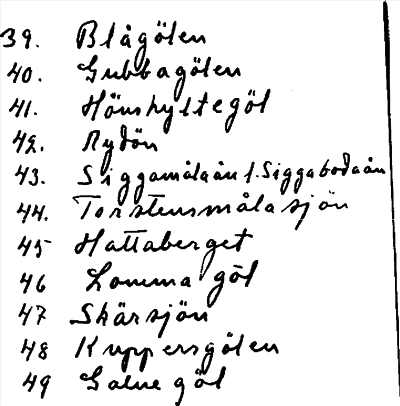 39. Blågölen
40. Gubbagölen
41. Hönshyltegöl
42. Rydön
43. Siggamålaån l. Siggabodaån
44. Torstensmålasjön
45 Hattaberget
46 Lomma göl
47 Skärsjön
48 Kuppersgölen
49 Galne göl